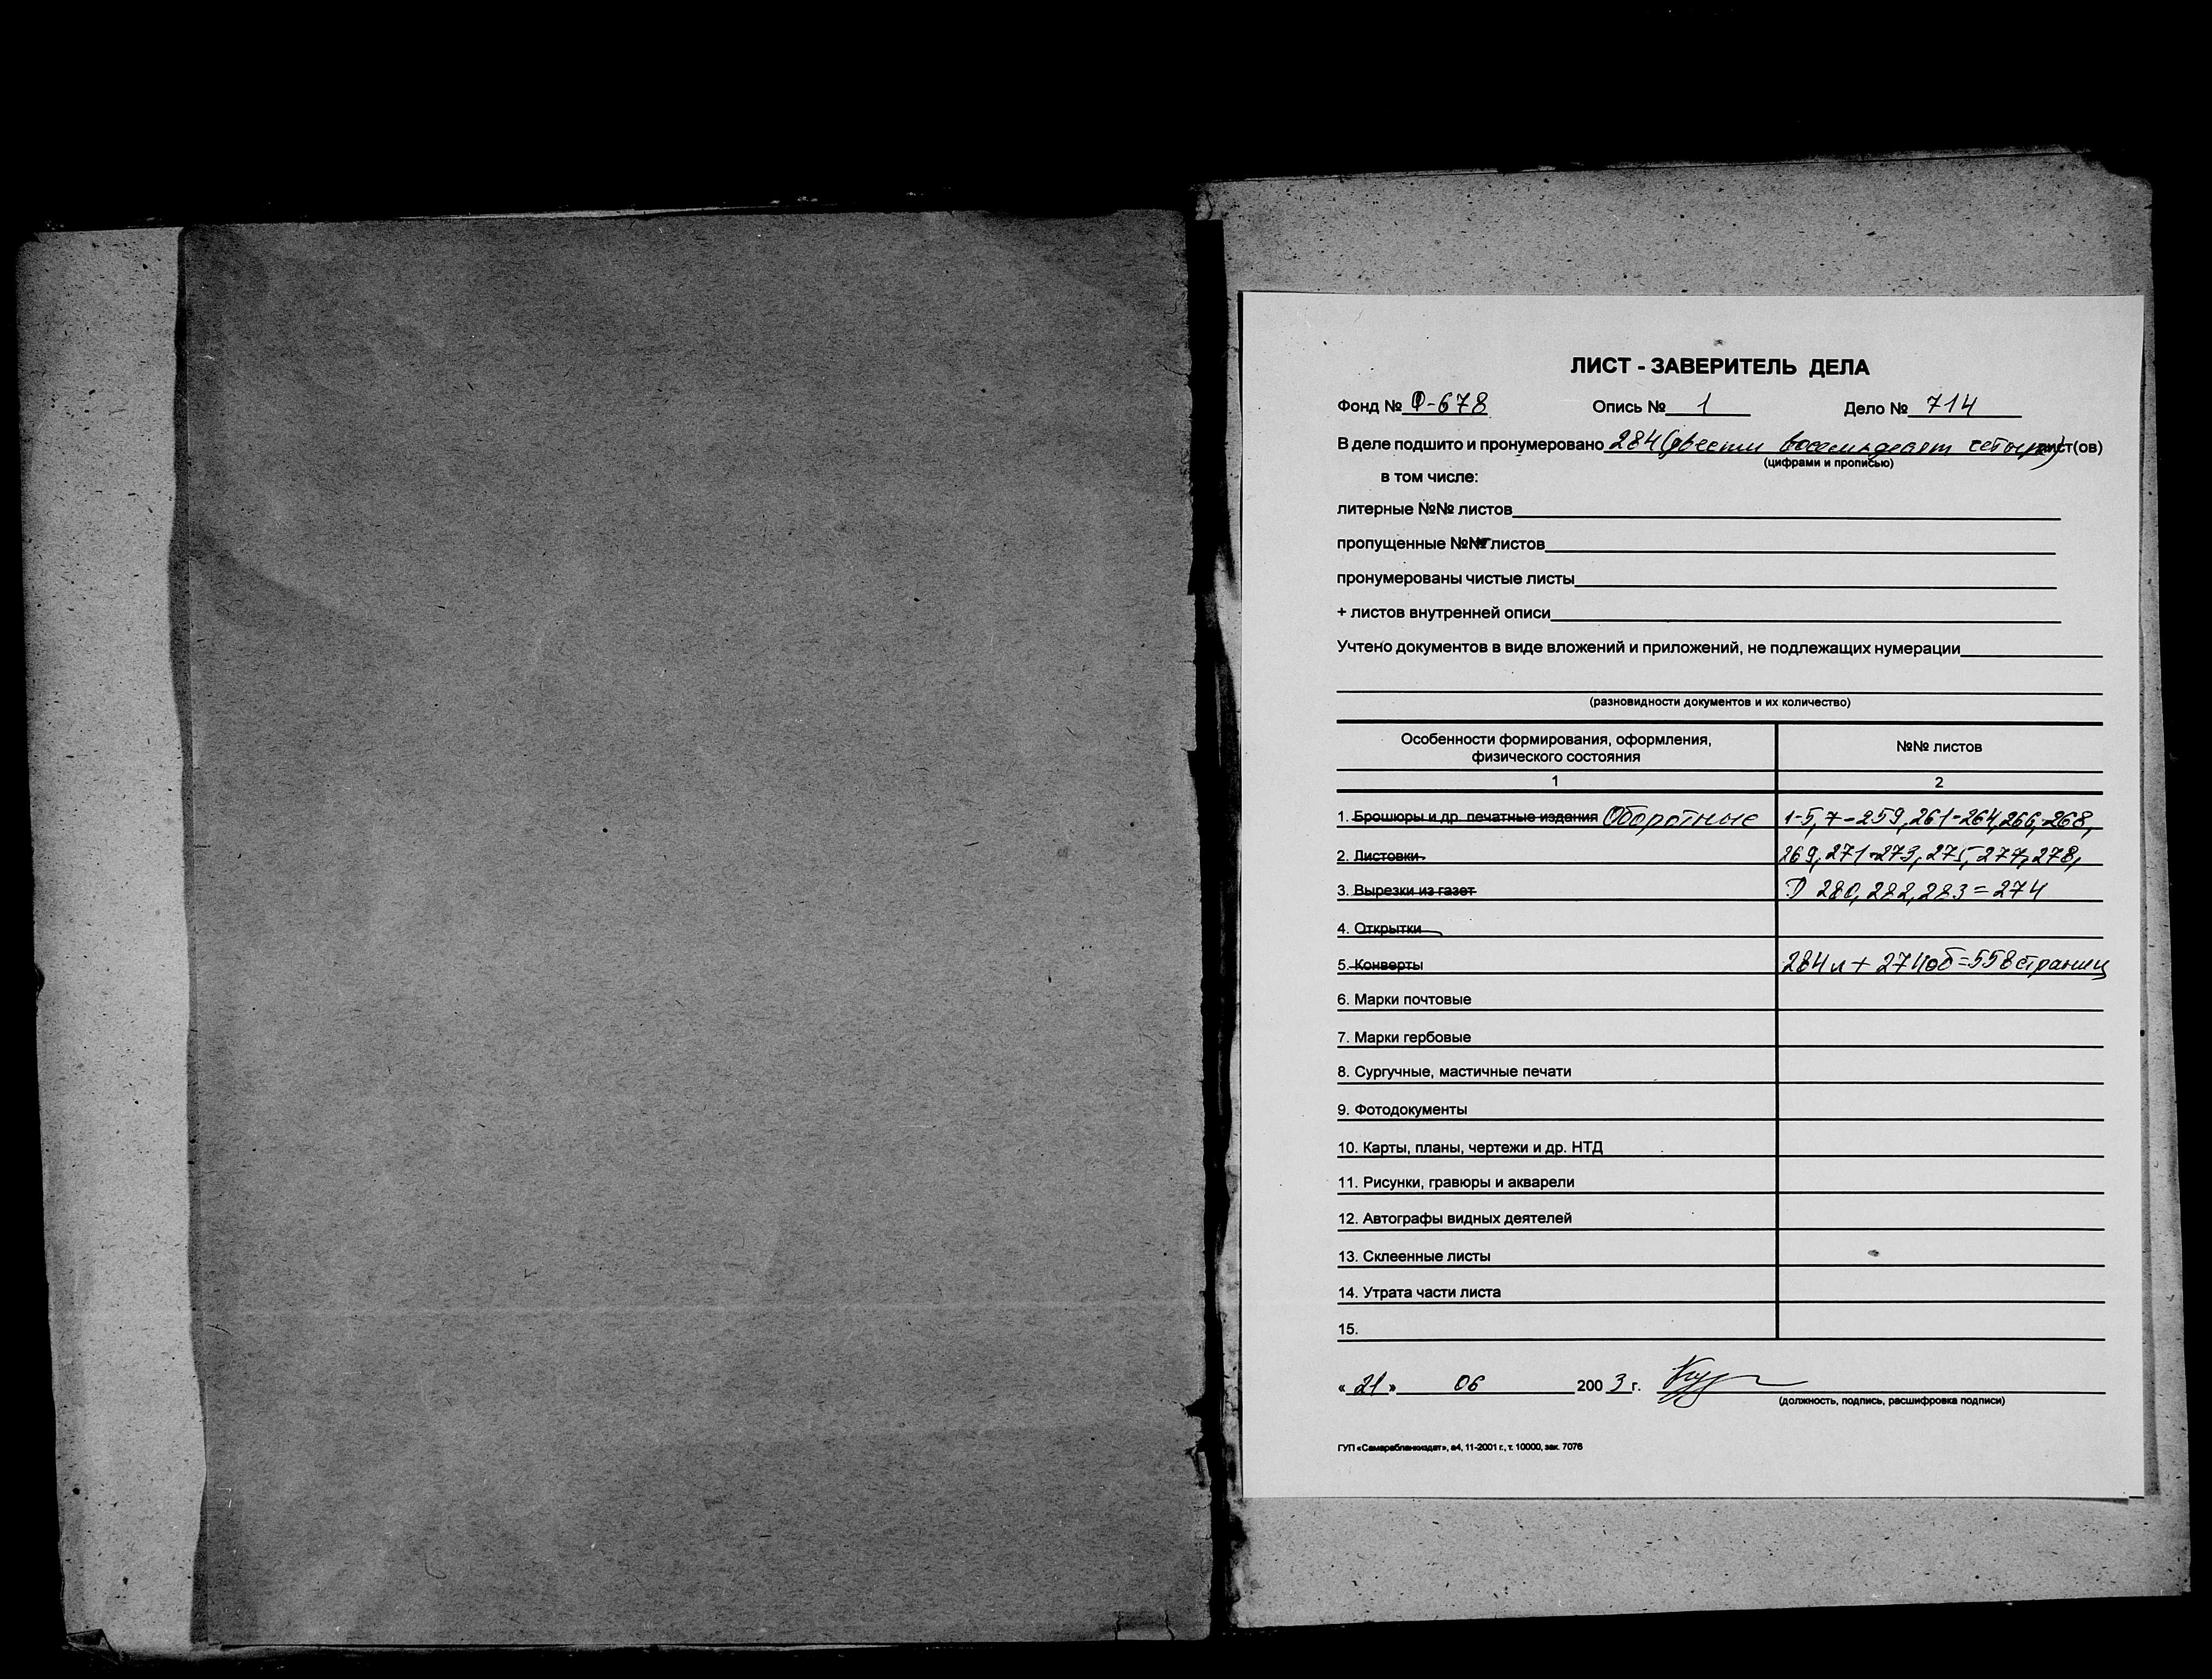 ЛИСТ - ЗАВЕРИТЕЛЬ ДЕЛА
Фонд № Ф-678 Опись № 1 Дело № 714
В деле подшито и пронумеровано 284 (двести восемьдесят четыре) лист(ов)
(цифрами и прописью)
в том числе:
литерные №№ листов
пропущенные №№ листов
пронумерованы чистые листы
+ листов внутренней описи
Учтено документов в виде вложений и приложений, не подлежащих нумерации
(разновидности документов и их количество)
Особенности формирования, оформления, физического состояния №№ листов
1 2
1. Брошюры и др. печатные издания Оборотные 1-5, 7-259, 261-264, 266, 268,
2. Листовки 269, 271-273, 275, 277, 278,
3. Вырезки из газет 280, 282, 283 = 274
4. Открытки
5. Конверты 284 л + 274 об = 558 страниц
6. Марки почтовые
7. Марки гербовые
8. Сургучные, мастичные печати
9. Фотодокументы
10. Карты, планы, чертежи и др. НТД
11. Рисунки, гравюры и акварели
12. Автографы видных деятелей
13. Склеенные листы
14. Утрата части листа
15.
« 21 » 06 2003 г.
(должность, подпись, расшифровка подписи)
ГУП «Самарабланкиздат», а4, 11-2001 г., т. 10000, зак. 7076